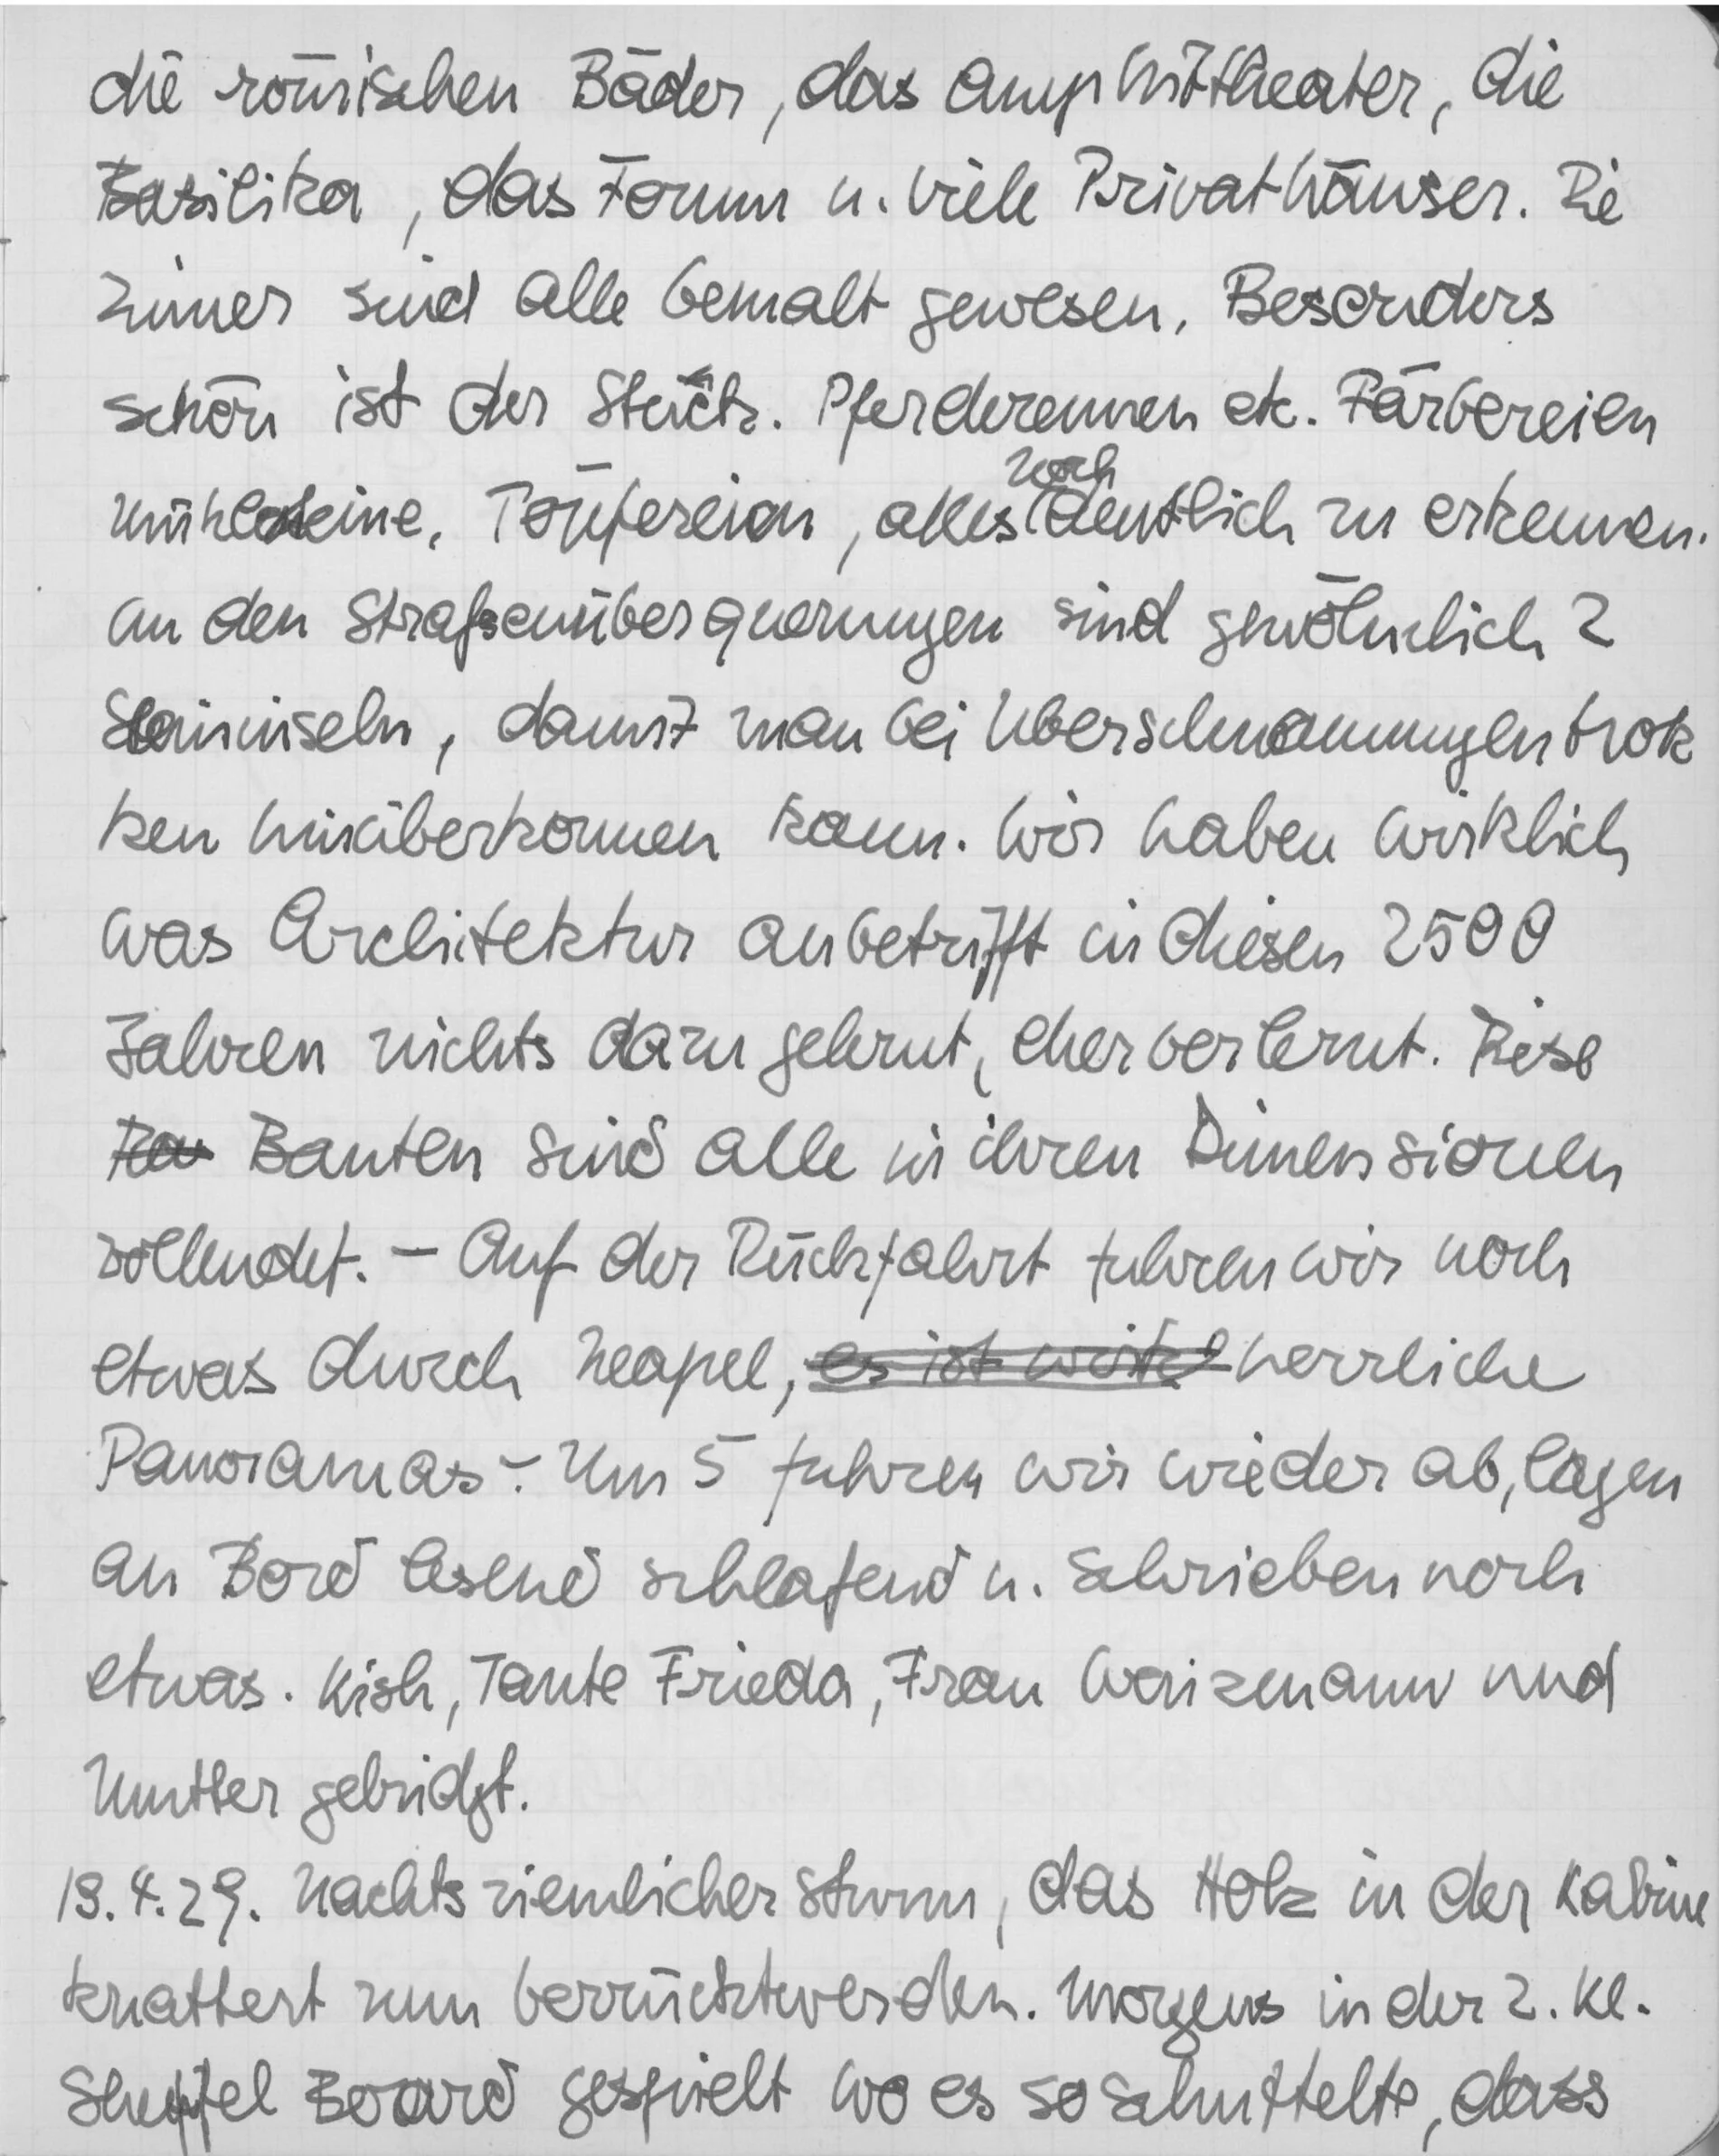 die römischen Bäder, das Amphittheater, die
Basilika, das Forum u. viele Privathäuser. Die
Zimer sind alle bemalt gewesen. Besonders
schön ist der Stuck. Pferderennen etc. Färbereien
Mühlsteine, Töpfereien, alles noch deutlich zu erkennen.
An den Strassenüberquerungen sind gewöhnlich 2
Steininseln, damit man bei Überschwemmungen trok
ken hinüberkommen kann. Wir haben wirklich
was Architektur anbetrifft in diesen 2500
Jahren nichts dazu gelernt, eher verlernt. Diese
Bauten sind alle in ihren Dimensionen
vollendet. – Auf der Rückfahrt fuhren wir noch
etwas durch Neapel, es ist wirkl herrliche
Panoramas – Um 5 fuhren wir wieder ab, lagen
an Bord lesend schlafend u. schrieben noch
etwas. Kish, Tante Frieda, Frau Weizmann und
Mutter gebridgt.
19.4.29. Nachts ziemlicher Sturm, das Holz in der Kabine
knattert zum verrücktwerden. Morgens in der 2. Kl.
Board gespielt wo es so schüttelte, dass